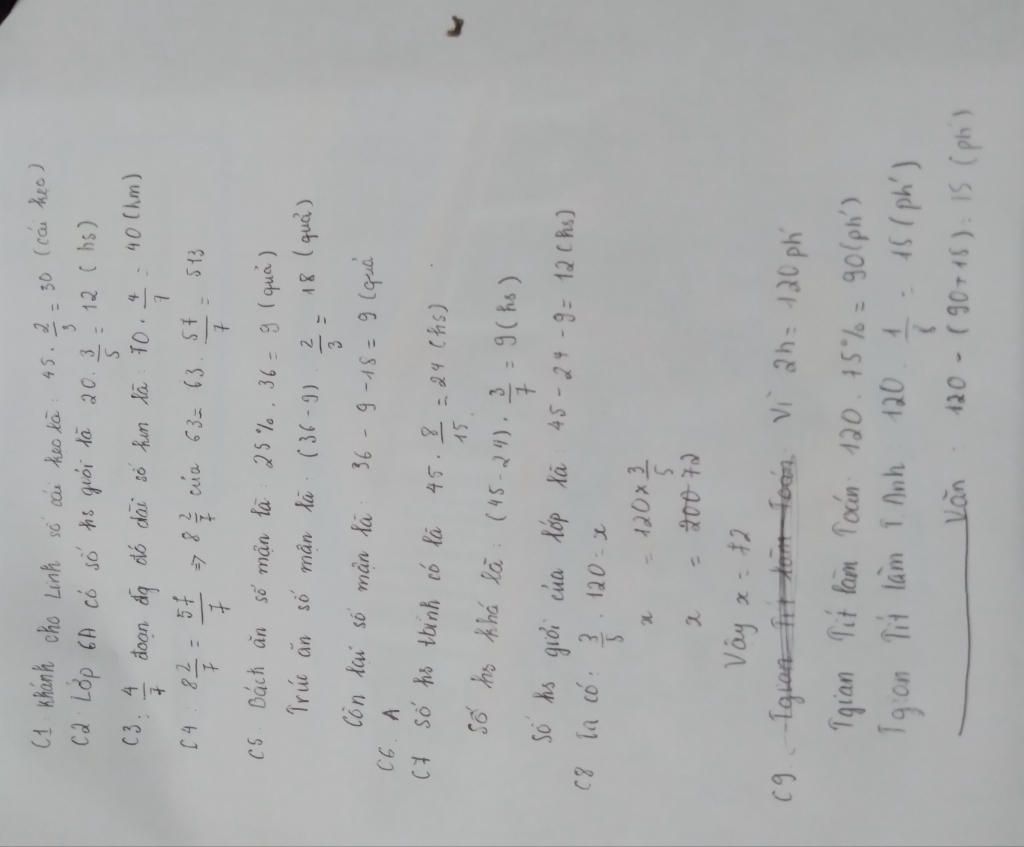 C1. Khánh cho Linh số cái kẹo là : 45 . 2/3 = 30 (cái kẹo)
C2. Lớp 6A có số hs giỏi là 20 . 3/5 = 12 (hs)
C3 : 4/7 đoạn đg đó dài số hm là : 70 . 4/7 = 40 (hm)
C4 : 8 2/7 = 57/7 => 8 2/7 của 63 = 63 . 57/7 = 513
C5. Bách ăn số mận là : 25% . 36 = 9 (quả)
Trúc ăn số mận là : (36 - 9) . 2/3 = 18 (quả)
Còn lại số mận là : 36 - 9 - 18 = 9 (quả
C6. A
C7 Số hs tbình có là 45 . 8/15 = 24 (hs)
Số hs khá là : (45 - 24) . 3/7 = 9 (hs)
Số hs giỏi của lớp là : 45 - 24 - 9 = 12 (hs)
C8 Ta có : 3/5 . 120 = x
x = 120 x 3/5
x = 200 72
Vậy x = 72
C9. Tgian Tít làm Toán : Vì 2h = 120 ph
Tgian Tít làm Toán : 120 . 75% = 90 (ph')
Tgian Tít làm T Anh : 120 . 1/8 = 15 (ph')
Văn : 120 - (90 + 15) = 15 (ph)